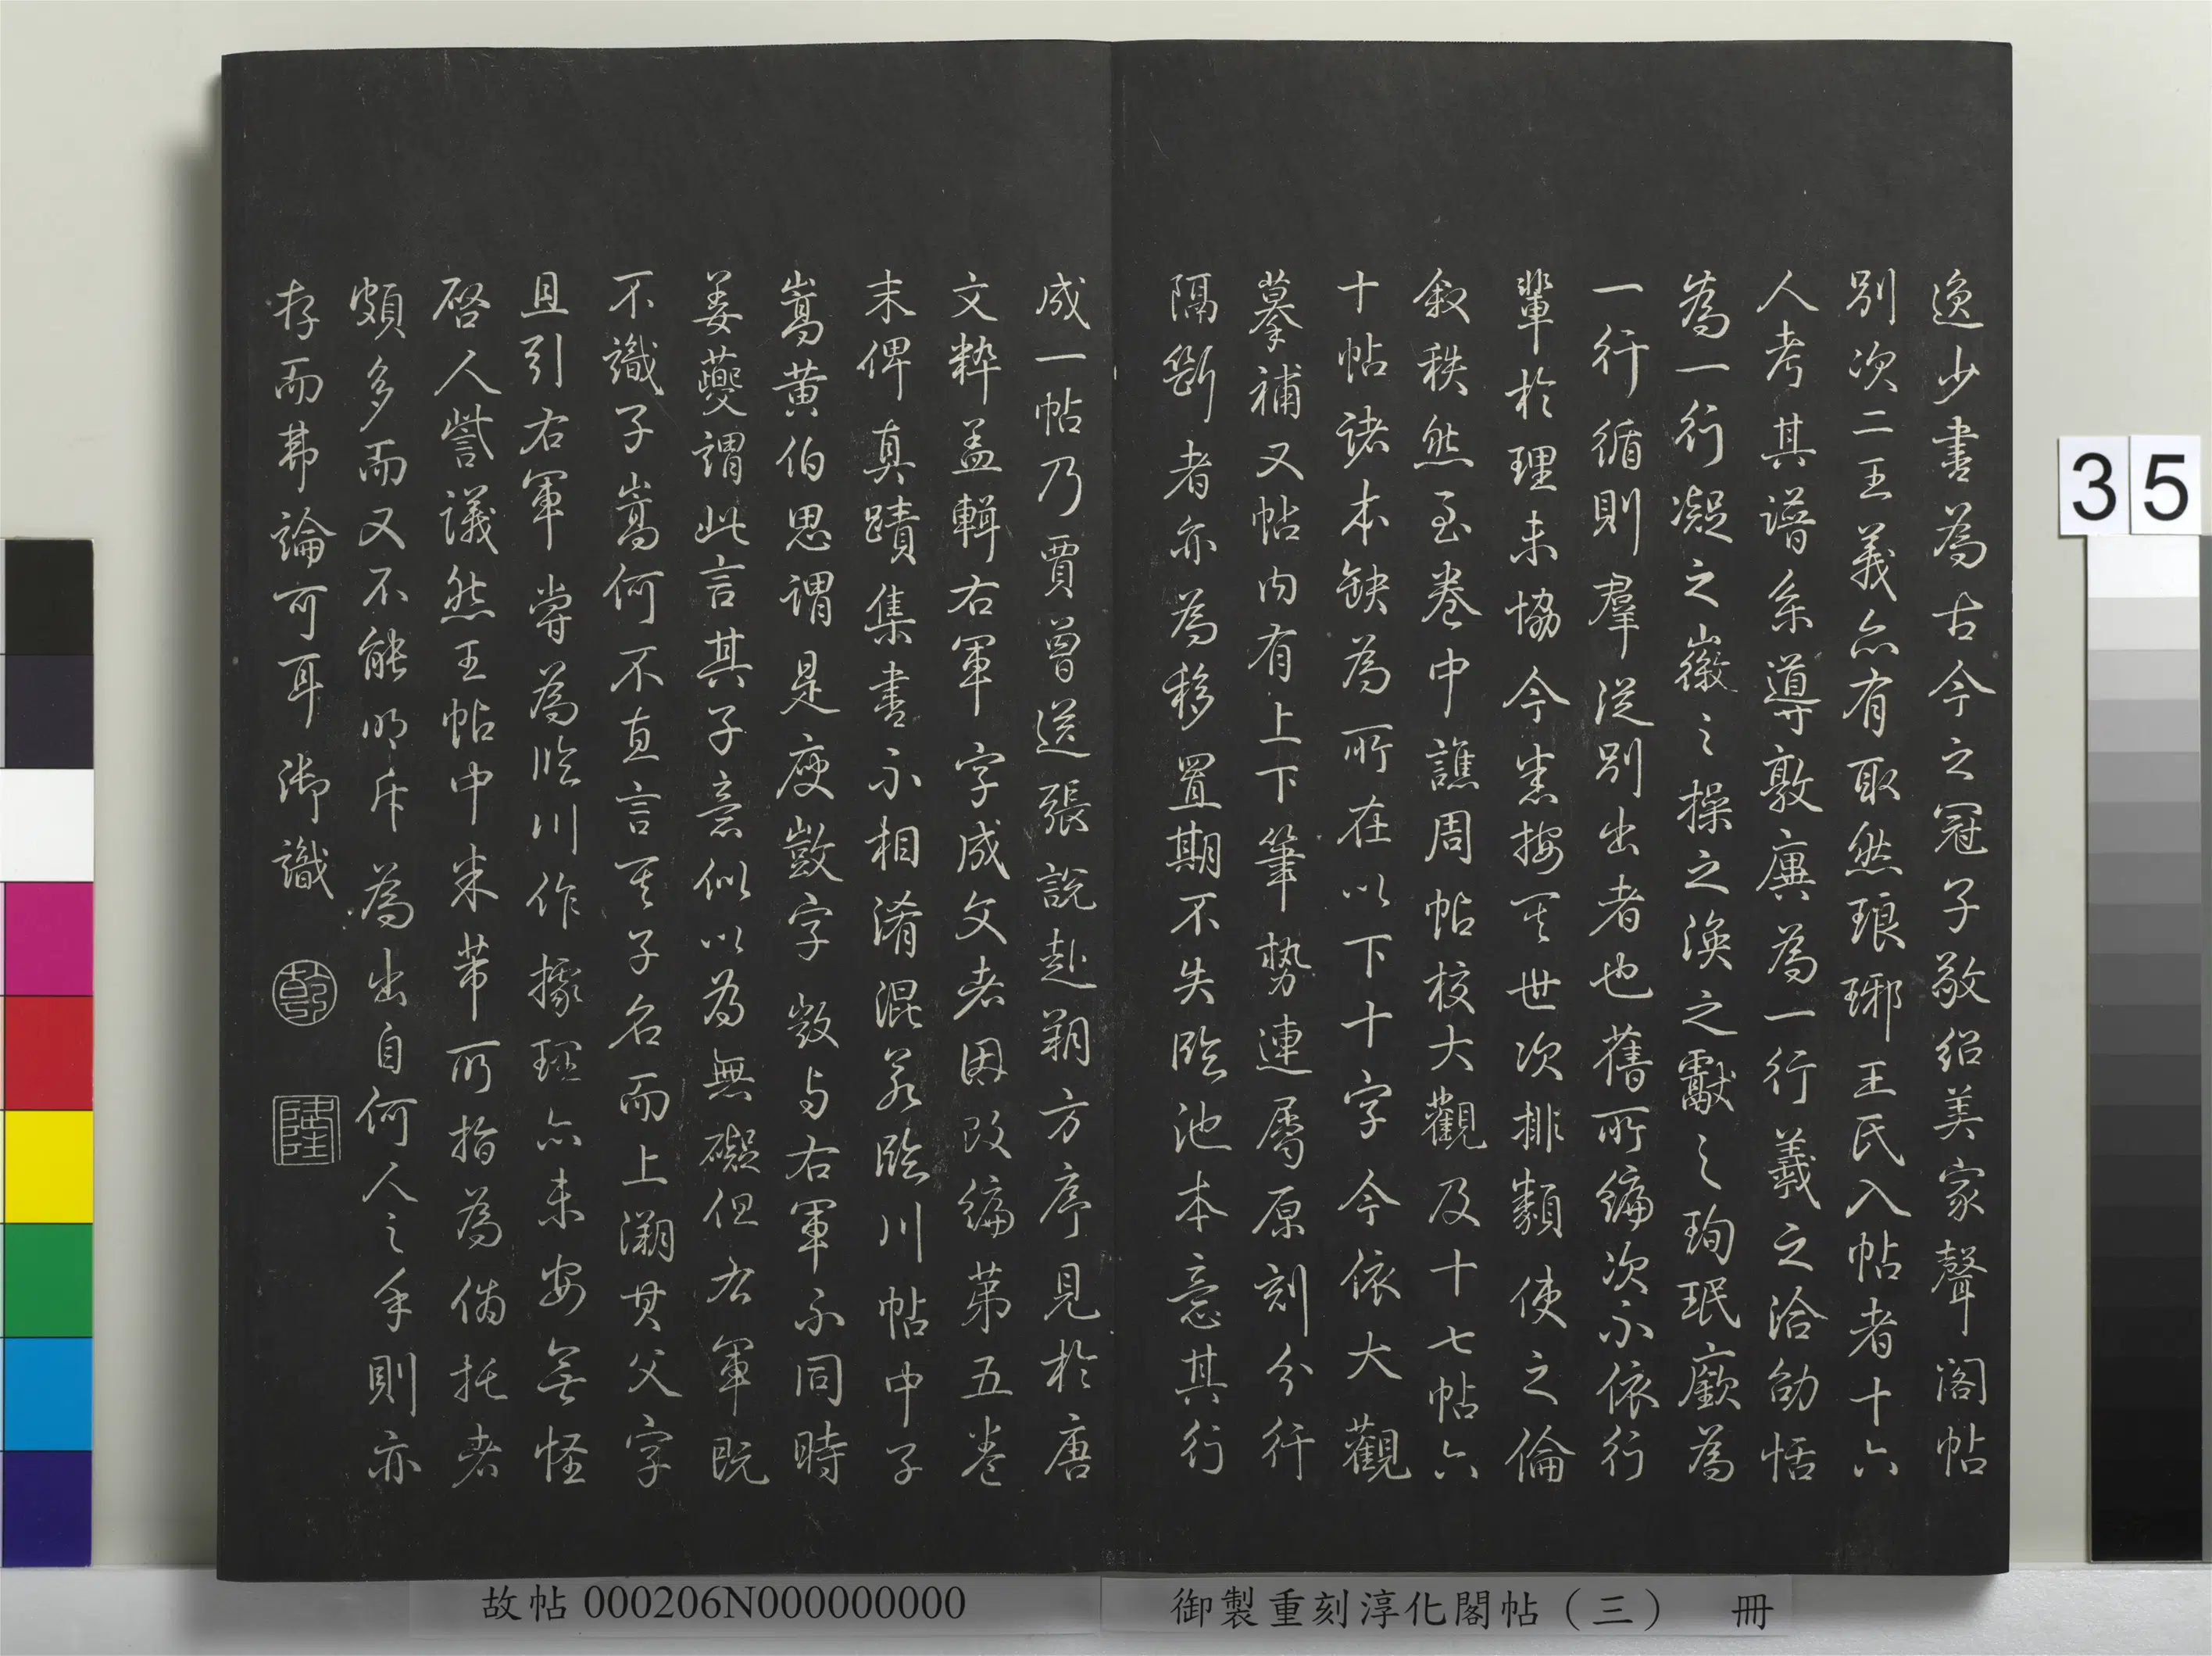 逸少書為古今之冠子敬紹美家聲閣帖
別次二王義亦有取然琅琊王氏入帖者十六
人考其譜系導敦廙為一行羲之洽劭恬
為一行凝之徽之操之渙之獻之珣珉廞為
一行循則羣從別出者也舊所編次不依行
輩於理未協今悉按其世次排類使之倫
敘秩然至卷中譙周帖校大觀及十七帖六
十帖諸本缺為所在以下十字今依大觀
摹補又帖內有上下筆勢連屬原刻分行
隔斷者亦為移置期不失臨池本意其行
成一帖乃賈曾送張說赴朔方序見於唐
文粹蓋輯右軍字成文者因改編第五卷
末俾真蹟集書不相淆混若臨川帖中子
嵩黃伯思謂是庾敳字敳與右軍不同時
姜夔謂此言其子意似以為無礙但右軍既
不識子嵩何不直言其子名而上溯其父字
且引右軍嘗為臨川作據理亦未安無怪
啓人訾議然王帖中米芾所指為偽托者
頗多而又不能明斥為出自何人之手則亦
存而弗論可耳御識
乾
隆
35
故帖000206N000000000
御製重刻淳化閣帖（三） 冊